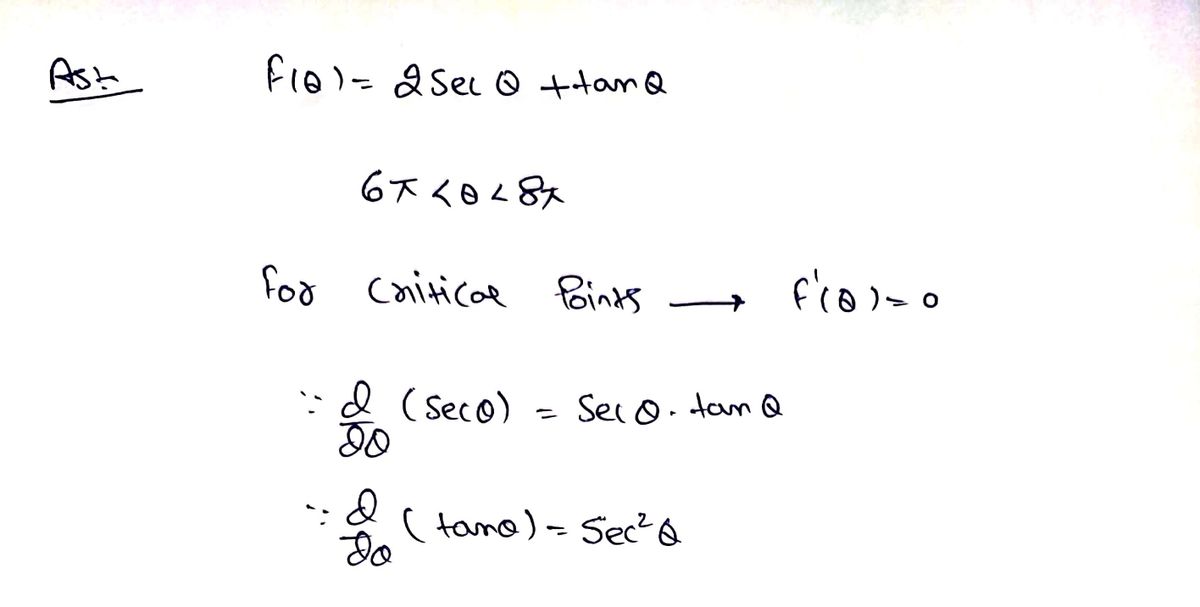 Ans:- f(θ) = 2 Sec θ + tan θ
6π < θ < 8π
For Critical Points → f'(θ) = 0
∵ d/dθ (Sec θ) = Sec θ . tan θ
∵ d/dθ (tan θ) = Sec² θ